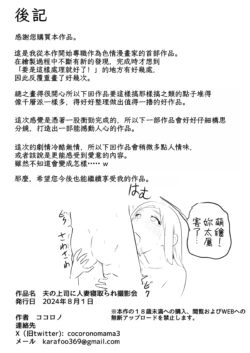 後記
感謝您購買本作品。
這是我從本作開始專職作為色情漫畫家的首部作品。
在繪製過程中不斷有新的發現，完成時才想到
「要是這樣處理就好了！」的地方有好幾處，
因此反覆重畫了好幾次。
總之畫得很開心所以下回作品要這樣搞那樣搞之類的點子堆得
像千層派一樣多，得好好整理做出值得一擼的好作品。
這次感覺是憑著一股衝勁完成的，所以下一部作品會好好仔細構思
分鏡，打造出一部能撼動人心的作品。
這次的劇情冷酷無情，所以下回作品會稍微多點人情味，
或者該說是更能感受到愛意的內容。
雖然不知道會變成怎樣……ｗ
那麼，希望您今後也能繼續享受我的作品。
はむ
さわさわ
萌繪！
妳太厲害！
作品名　夫の上司に人妻寝取られ撮影会　7
発行日　2024年８月１日
作者　ココロノ
連絡先
X（旧twitter）：cocoronomama3
メール　karafoo369@gmail.com
※本作の１８歳未満への購入、閲覧およびWEBへの
無断アップロードを禁止します。